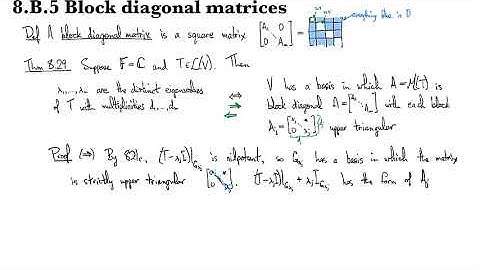 8.B.5 Block diagonal matrices
Def A block diagonal matrix is a square matrix [A₁ 0 ⋱ 0 Aₘ] = everything else is 0
Thm 8.29 Suppose F=C and T∈L(V). Then
λ₁,…,λₘ are the distinct eigenvalues
of T with multiplicities d₁,…,dₘ
⇔
⇐
V has a basis in which A=M(T) is
block diagonal A=[A₁ ⋱ Aₘ] with each block
Aⱼ=[λⱼ * ⋱ 0 λⱼ] upper triangular
Proof (⇒) By 8.21c, (T-λⱼI)|Gλⱼ is nilpotent, so Gλⱼ has a basis in which the matrix
is strictly upper triangular [0 * ⋱ 0 0]. (T-λⱼI)|Gλⱼ + λⱼ I Gλⱼ has the form of Aⱼ